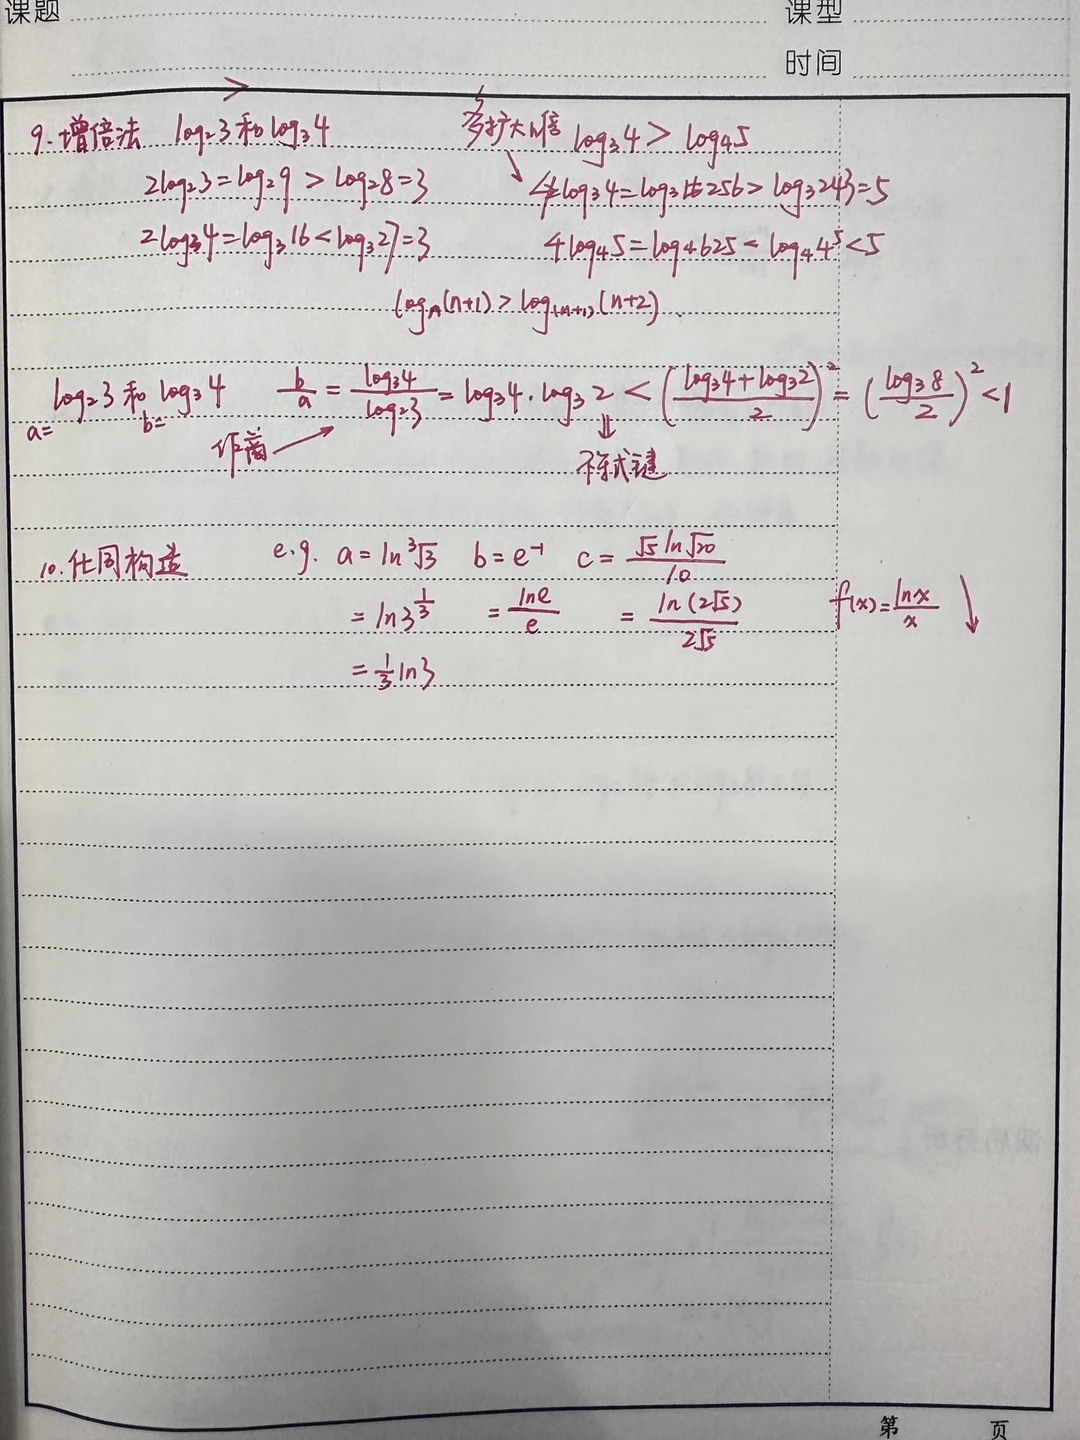 课题 课型
时间
>
9.增倍法 log₂3和log₃4 多扩大n倍 log₃4 > log₄5
2log₂3=log₂9 > log₂8=3 4log₃4=log₃256 > log₃243=5
2log₃4=log₃16<log₃27=3 4log₄5=log₄625 < log₄4⁵<5
logₙ(n+1) > log₍ₙ₊₁₎(n+2)
log₂3和log₃4 b/a = log₃4/log₂3 = log₃4·log₃2 < ((log₃4+log₃2)/2)² = (log₃8/2)² <1
a= b=
作商 不等式链
10.同构造 e.g. a=ln³√3 b=e⁻¹ c=√5 ln√20/10
=ln3^(1/3) =lne/e =ln(2√5)/2√5 f(x)=lnx/x ↘
=1/3 ln3
第 页